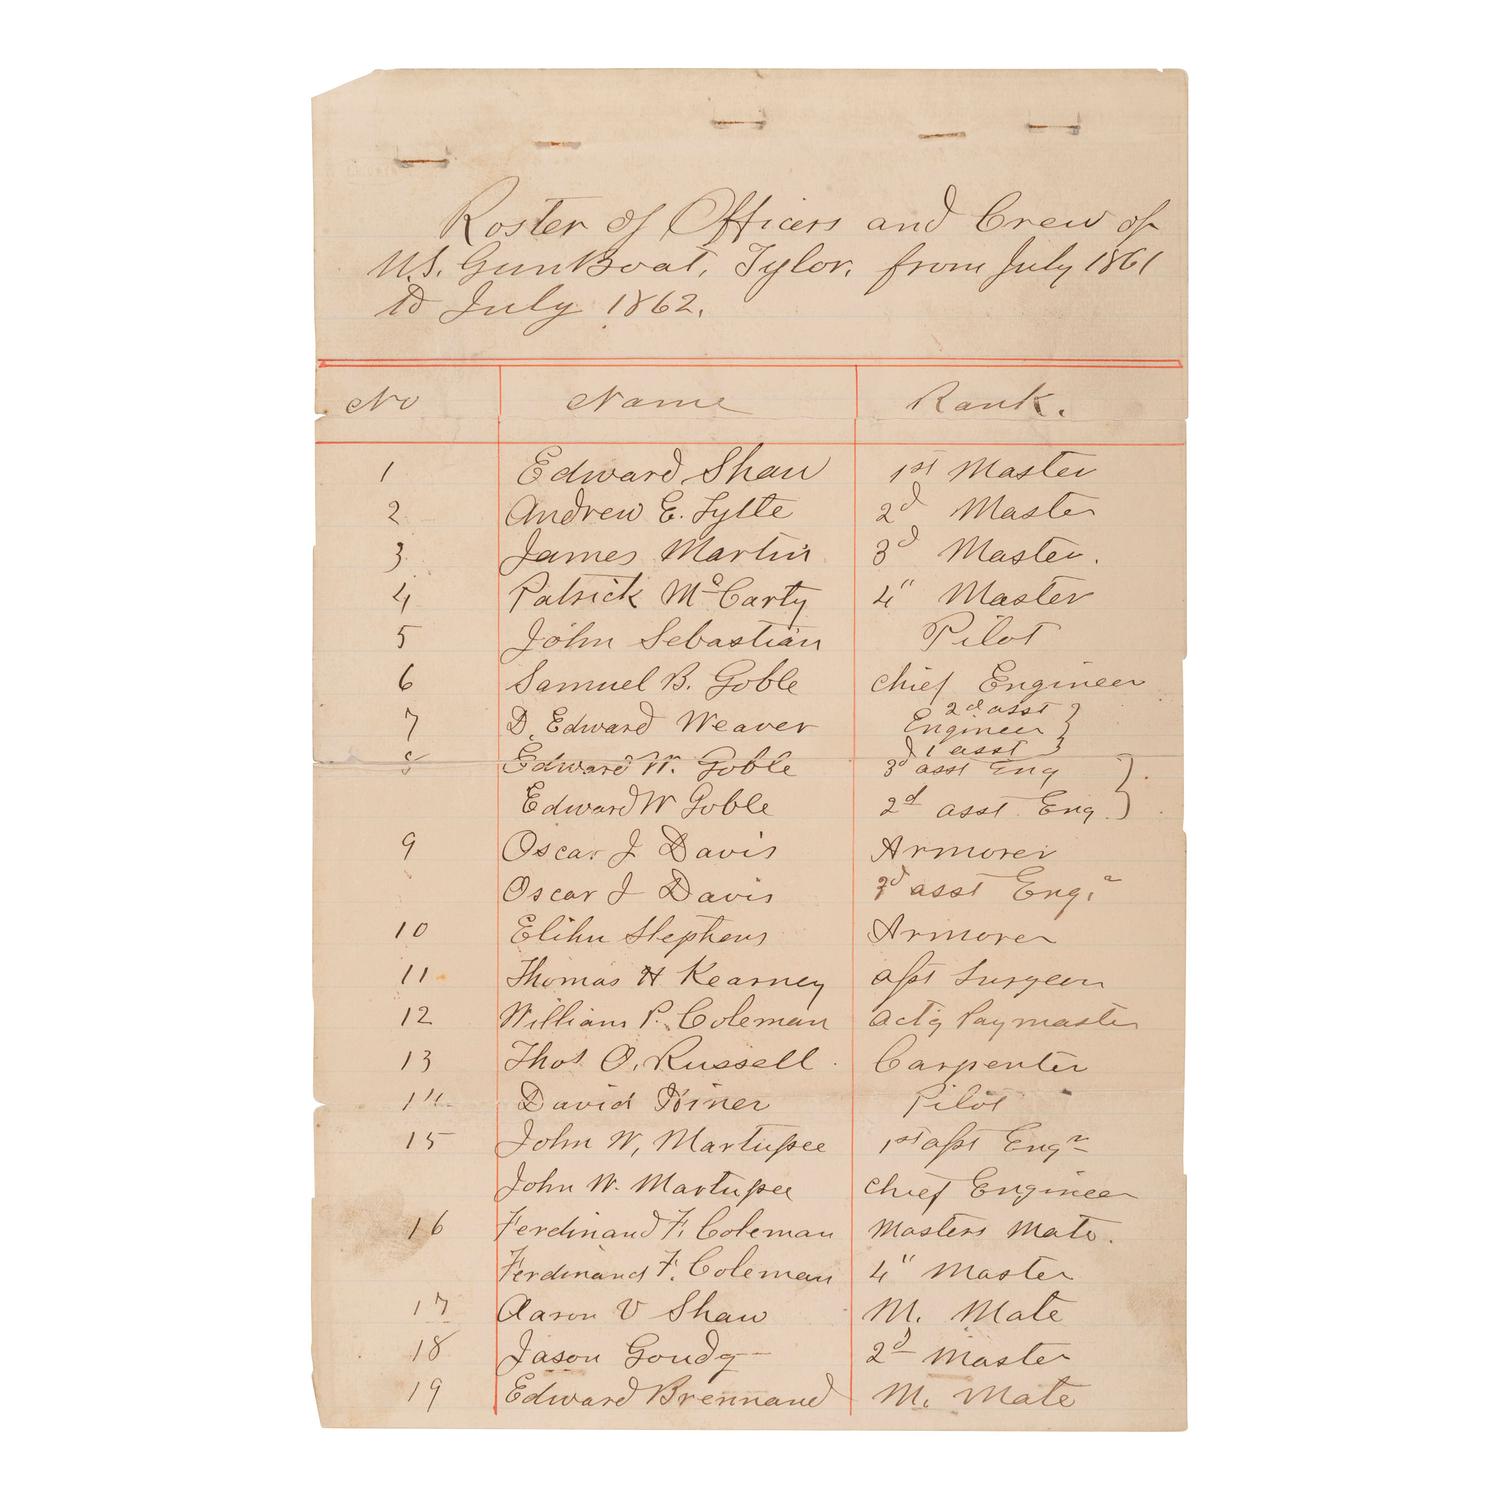 Roster of Officers and Crew of
U.S. GunBoat, Tylor, from July 1861
to July 1862.
No Name Rank.
1 Edward Shaw 1st Master
2 Andrew E. Lytte 2d Master
3 James Martin 3d Master.
4 Patrick McCarty 4" Master
5 John Sebastian Pilot
6 Samuel B. Goble Chief Engineer
7 D. Edward Weaver 2d asst }
Engineer }
1 asst }
8 Edward W. Goble 3d asst Eng }
Edward W Goble 2d asst Eng. }
9 Oscar J Davis Armorer
Oscar J Davis 3d asst Engr
10 Elihu Stephens Armorer
11 Thomas H Kearney asst Surgeon
12 William P. Coleman actg Paymaster
13 Thos O. Russell Carpenter
14 David Hiner Pilot
15 John W, Martupee 1st asst Engr
John W. Martupee Chief Engineer
16 Ferdinand F. Coleman Masters Mate.
Ferdinand F. Coleman 4" Master
17 Aaron V Shaw M. Mate
18 Jason Goudy 2d Master
19 Edward Brennand M. Mate